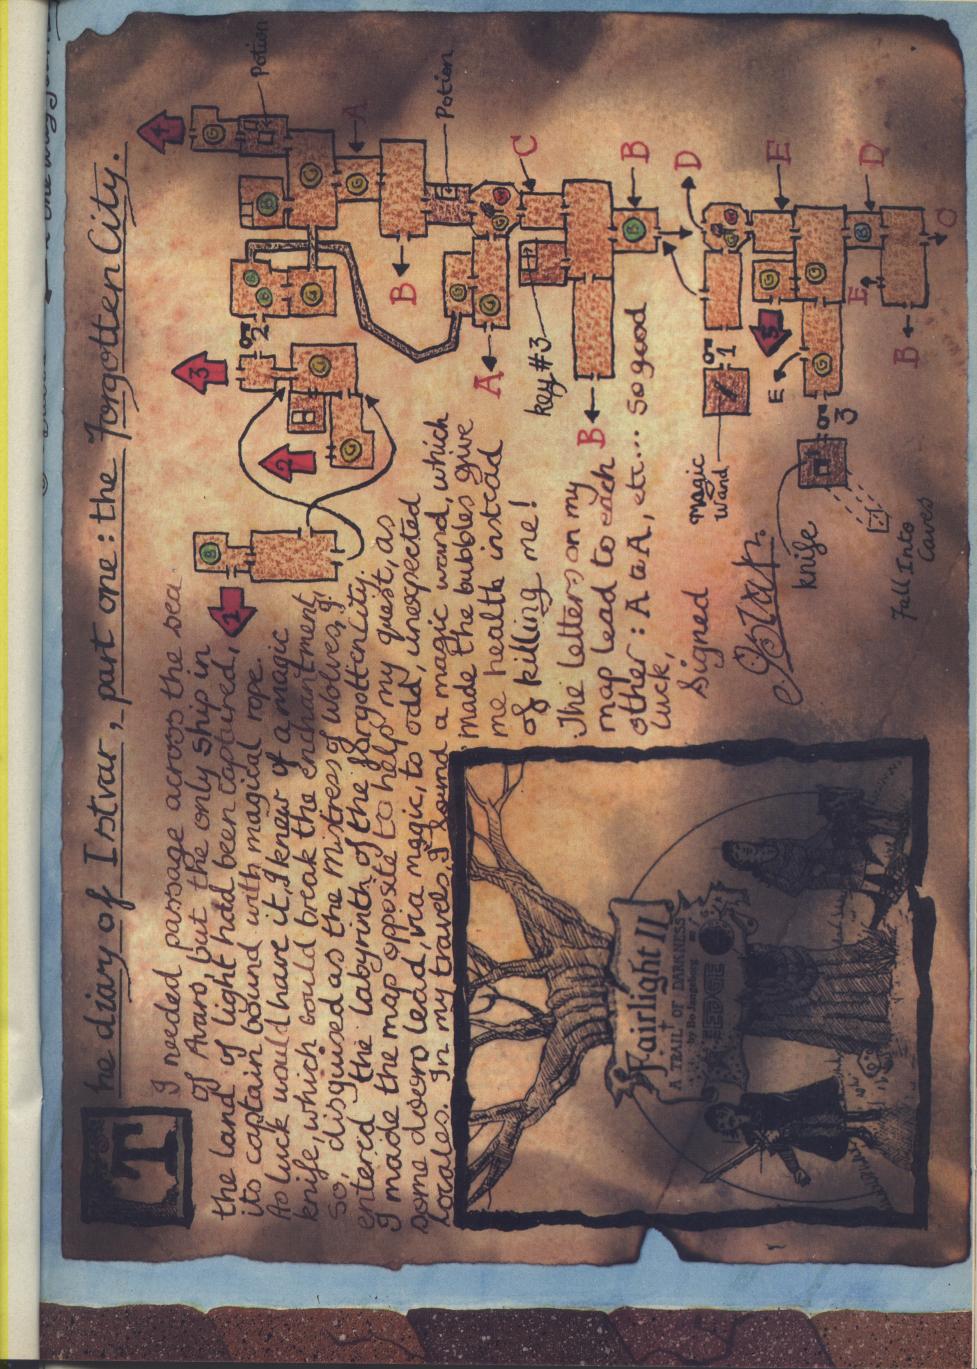 The diary of Istvar, part one: the Forgotten City.
I needed passage across the sea
of Avars, but the only ship in
the land of light had been captured,
its captain bound with magical rope.
As luck would have it, I knew of a magic
knife, which would break the enchantment
So, disguised as the Mistress of Wolves, I
enterid the labyrinth of the forgotten city.
I made the map opposite to help my quest, as
some doors lead, via magic, to odd, unexpected
locales. In my travels, I found a magic wand, which
made the bubbles give
me health instead
of killing me!
The letters on my
map lead to each
other: A to A, etc... so good
luck,
Signed
Fairlight II
A TRAIL OF DARKNESS
by Bo Jangeborg
THE EDGE
1
2
3
4
5
Potion
Potion
A
B
C
B
D
A
key #3
B
E
D
E
E
B
C
2
1
3
Magic
Wand
knife
Fall Into
Caves
G
B